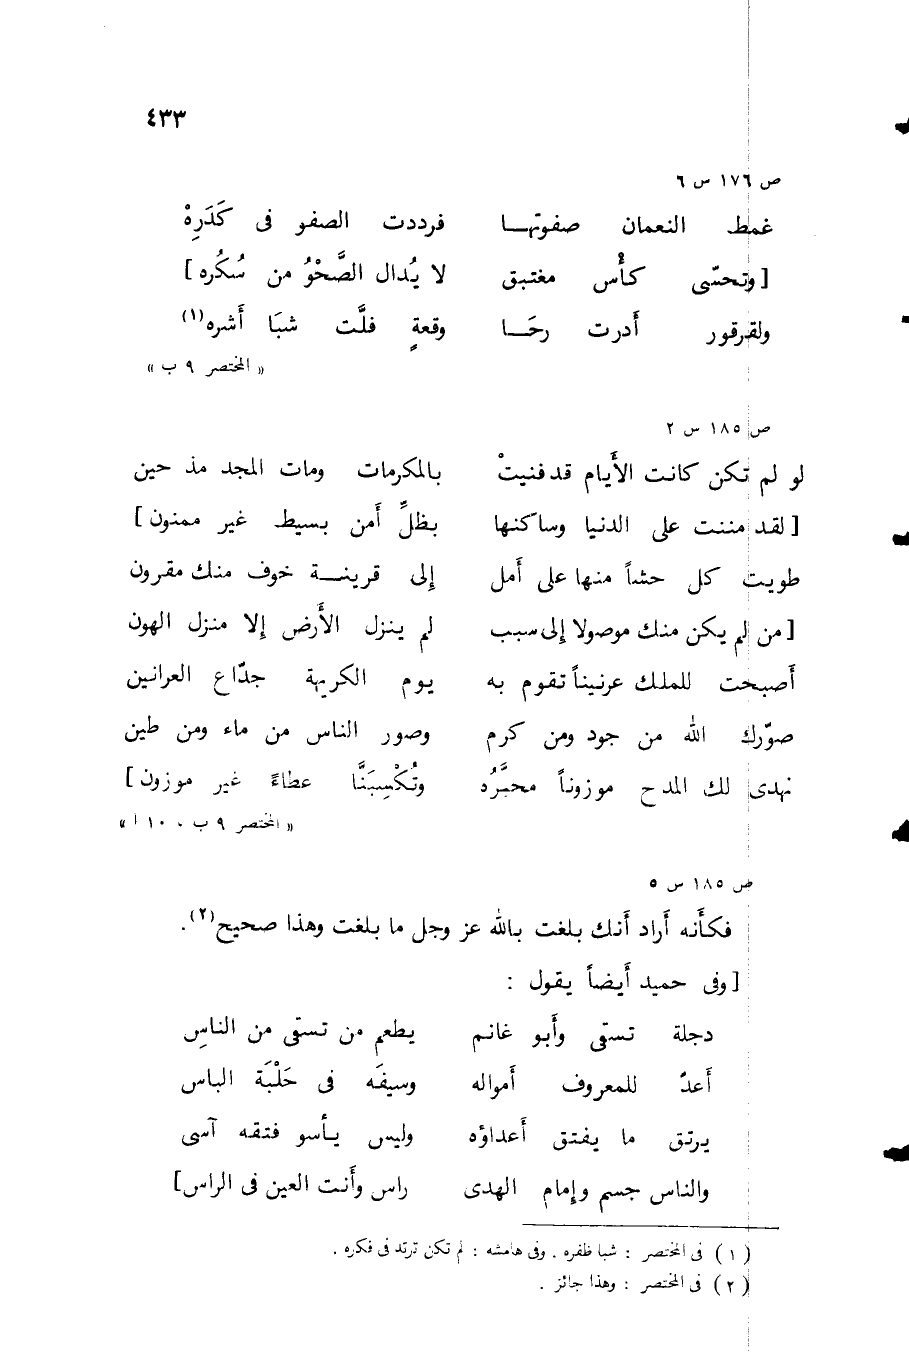 ٤٣٣
ص ١٧٦ س ٦
غمط النعمان صفوتها فرددت الصفو فى كَدَرِهْ
[وتحسّى كأْس مغتبق لا يُدال الصَّحْوُ من سُكُره]
ولقرقور أَدرت رحَا وقعةٍ فلَّت شبَا أَشره(١)
« المختصر ٩ ب »
ص ١٨٥ س ٢
لو لم تكن كانت الأَيام قد فنيتْ بالمكرمات ومات المجد مذ حين
[لقد مننت على الدنيا وساكنها بظلِّ أَمن بسيط غير ممنون]
طويت كل حشاً منها على أَمل إلى قرينة خوف منك مقرون
[من لم يكن منك موصولا إلى سبب لم ينزل الأَرض إلا منزل الهون
أَصبحت للملك عرنيناً تقوم به يوم الكريهة جدّاع العرانين
صوّرك الله من جود ومن كرم وصور الناس من ماء ومن طين
نهدى لك المدح موزوناً محبَّرُه وتُكْسِبَنَّا عطاءً غير موزون]
« المختصر ٩ ب ، ١٠ ا »
ص ١٨٥ س ٥
فكأَنه أَراد أَنك بلغت بالله عز وجل ما بلغت وهذا صحيح(٢).
[وفى حميد أَيضاً يقول :
دجلة تسقى وأَبو غانم يطعم من تسقى من الناسِ
أَعدّ للمعروف أَمواله وسيفَه فى حَلْبَة الباس
يرتق ما يفتق أَعداؤه وليس يأسو فتقه آسى
والناس جسم وإمام الهدى راس وأَنت العين فى الراس]
(١) فى المختصر : شبا ظفره . وفى هامشه : لم تكن ترتد فى فكره .
(٢) فى المختصر : وهذا جائز .